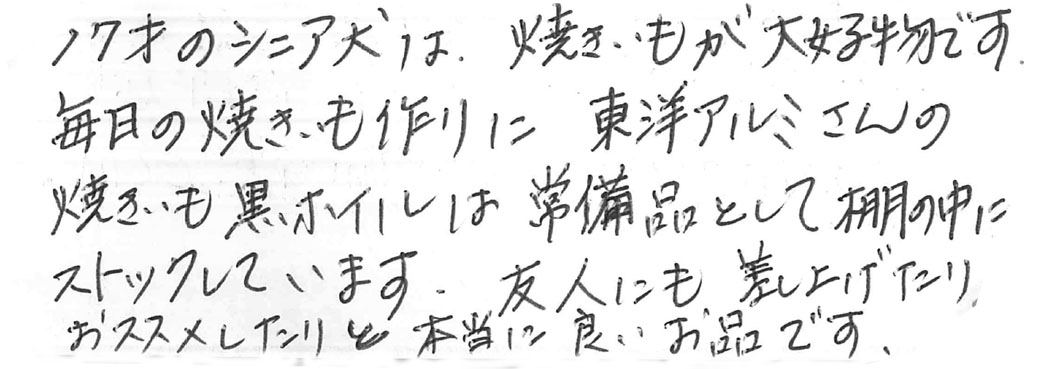 17才のシニア犬は、焼きいもが大好物です.
毎日の焼きいも作りに 東洋アルミさんの
焼きいも黒ホイルは常備品として棚の中に
ストックしています. 友人にも差し上げたり、
おススメしたりと本当に良いお品です、